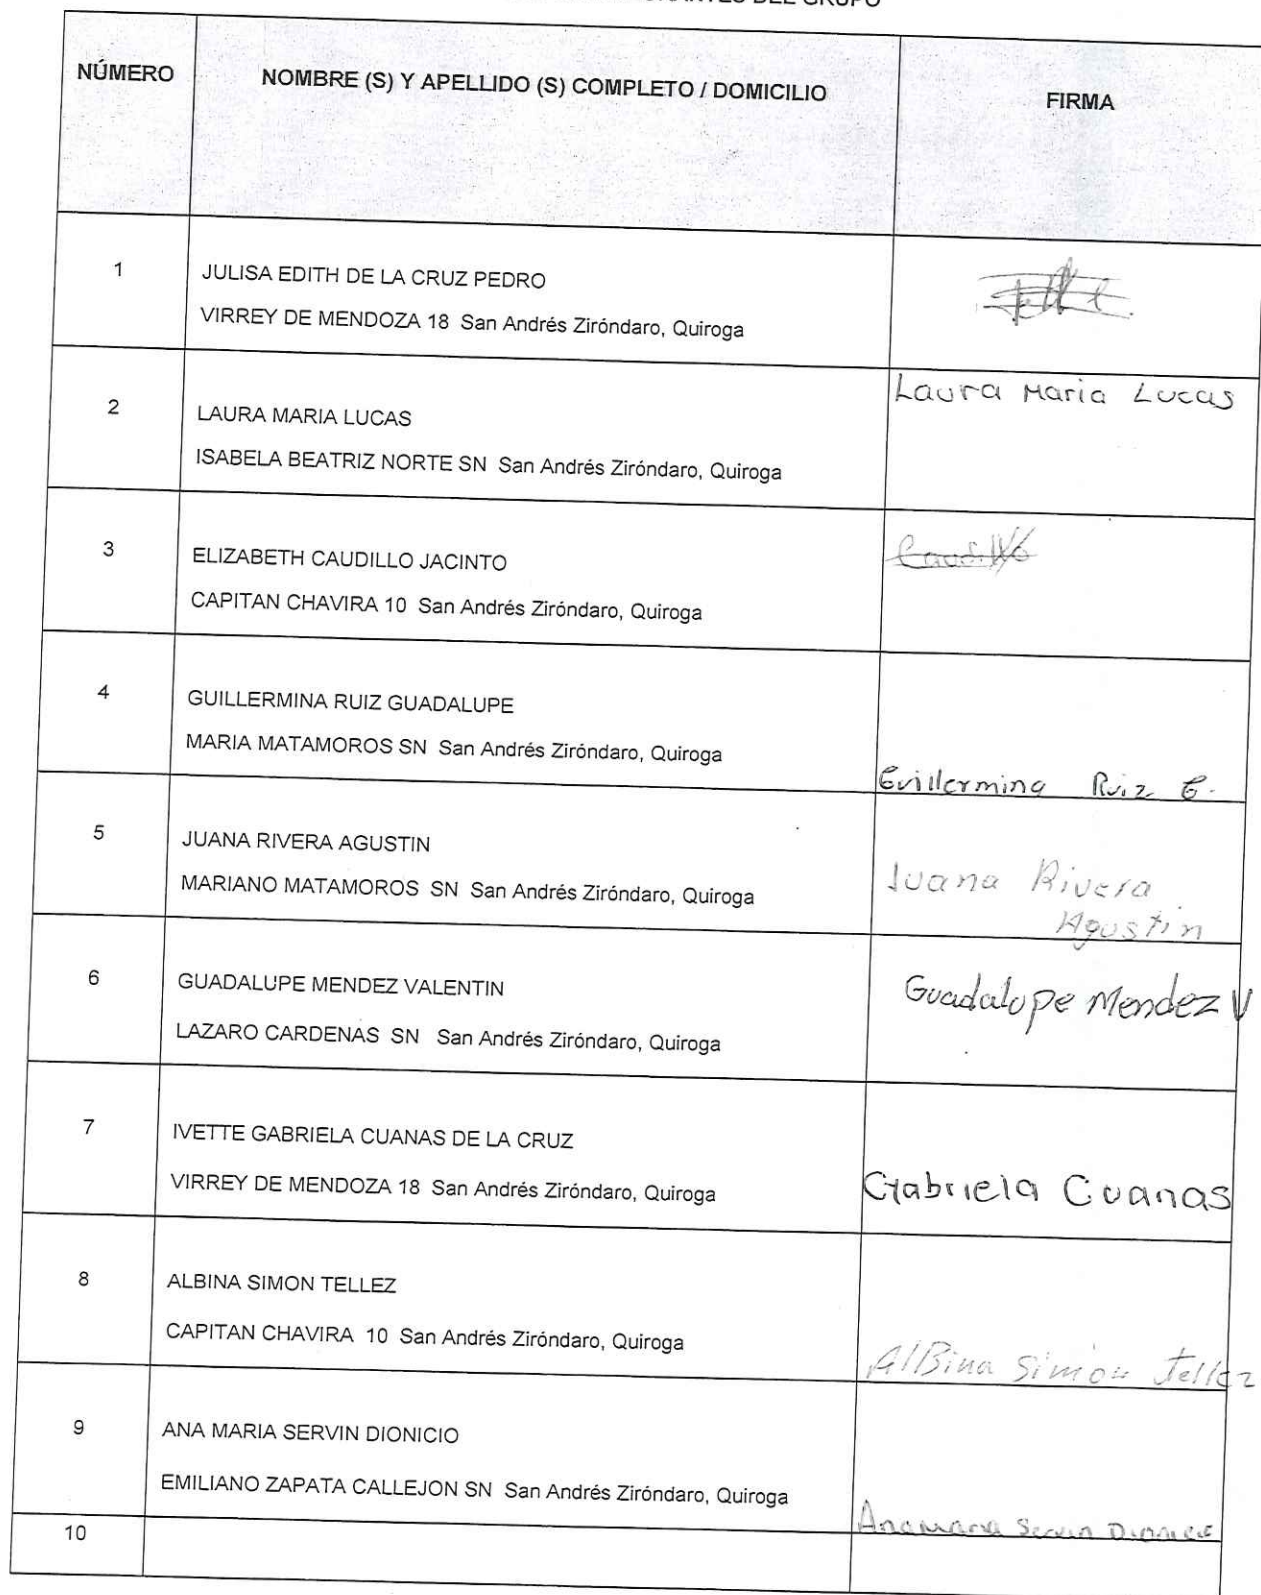 DEL GRUPO
NÚMERO
NOMBRE (S) Y APELLIDO (S) COMPLETO / DOMICILIO
FIRMA
1
JULISA EDITH DE LA CRUZ PEDRO
VIRREY DE MENDOZA 18 San Andrés Ziróndaro, Quiroga
2
LAURA MARIA LUCAS
ISABELA BEATRIZ NORTE SN San Andrés Ziróndaro, Quiroga
Laura Maria Lucas
3
ELIZABETH CAUDILLO JACINTO
CAPITAN CHAVIRA 10 San Andrés Ziróndaro, Quiroga
Caudillo
4
GUILLERMINA RUIZ GUADALUPE
MARIA MATAMOROS SN San Andrés Ziróndaro, Quiroga
Guillermina Ruiz G.
5
JUANA RIVERA AGUSTIN
MARIANO MATAMOROS SN San Andrés Ziróndaro, Quiroga
Juana Rivera
Agustin
6
GUADALUPE MENDEZ VALENTIN
LAZARO CARDENAS SN San Andrés Ziróndaro, Quiroga
Guadalupe Mendez V
7
IVETTE GABRIELA CUANAS DE LA CRUZ
VIRREY DE MENDOZA 18 San Andrés Ziróndaro, Quiroga
Gabriela Cuanas
8
ALBINA SIMON TELLEZ
CAPITAN CHAVIRA 10 San Andrés Ziróndaro, Quiroga
AlBina Simon Tellez
9
ANA MARIA SERVIN DIONICIO
EMILIANO ZAPATA CALLEJON SN San Andrés Ziróndaro, Quiroga
Anamaria Servin Dionicio
10